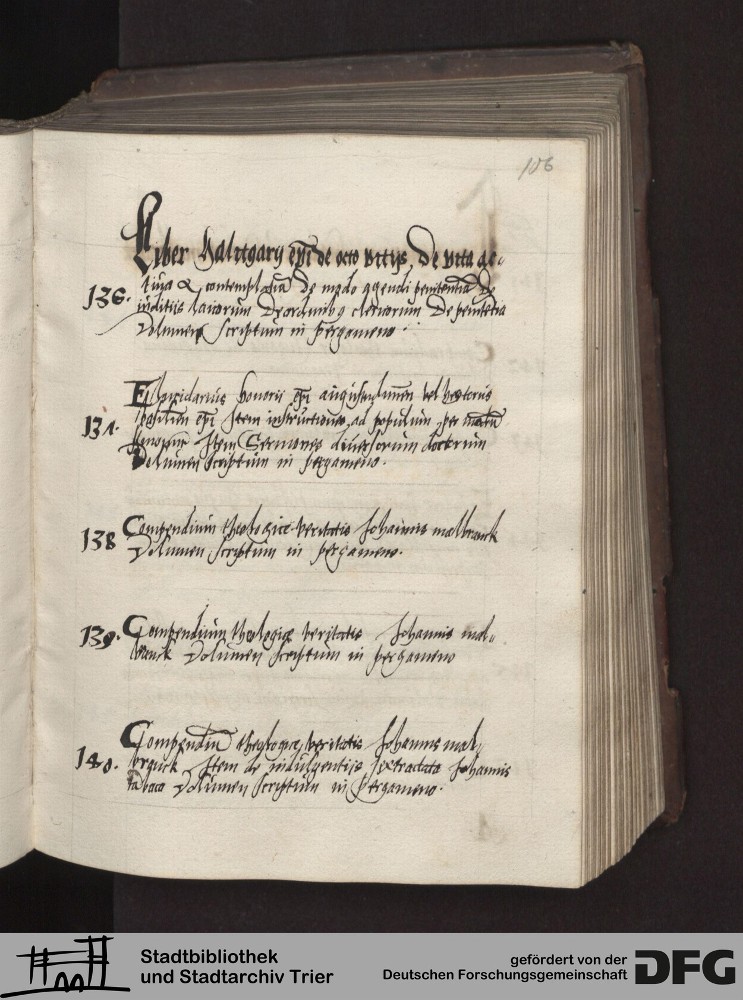 106
Liber Halitgarij epi de octo vitijs De vita ac„
136. tiua & contemplatiua De modo agendi penitentiã De
iuditiis laicorum De ordinibꝫ clericorum De penitẽtia
Volumen scriptum in pergameno.
Elucidarius honorii epi augustudunen vel
137. epi Item ad populum per
Item Sermones diuersorum doctorum
Volumen scriptum in pergameno.
138 Compendium theologice veritatis Johannis malbranck
Volumen scriptum in pergameno.
139. Compendium theologice veritatis Johannis mal„
branck Volumen scriptum in pergameno
Compendiũ theologice veritatis Johannis mal„
140. branck Item de indulgentiis Johannis
Volumen scriptum in pergameno.
Stadtbibliothek
und Stadtarchiv Trier
gefördert von der
Deutschen Forschungsgemeinschaft
DFG